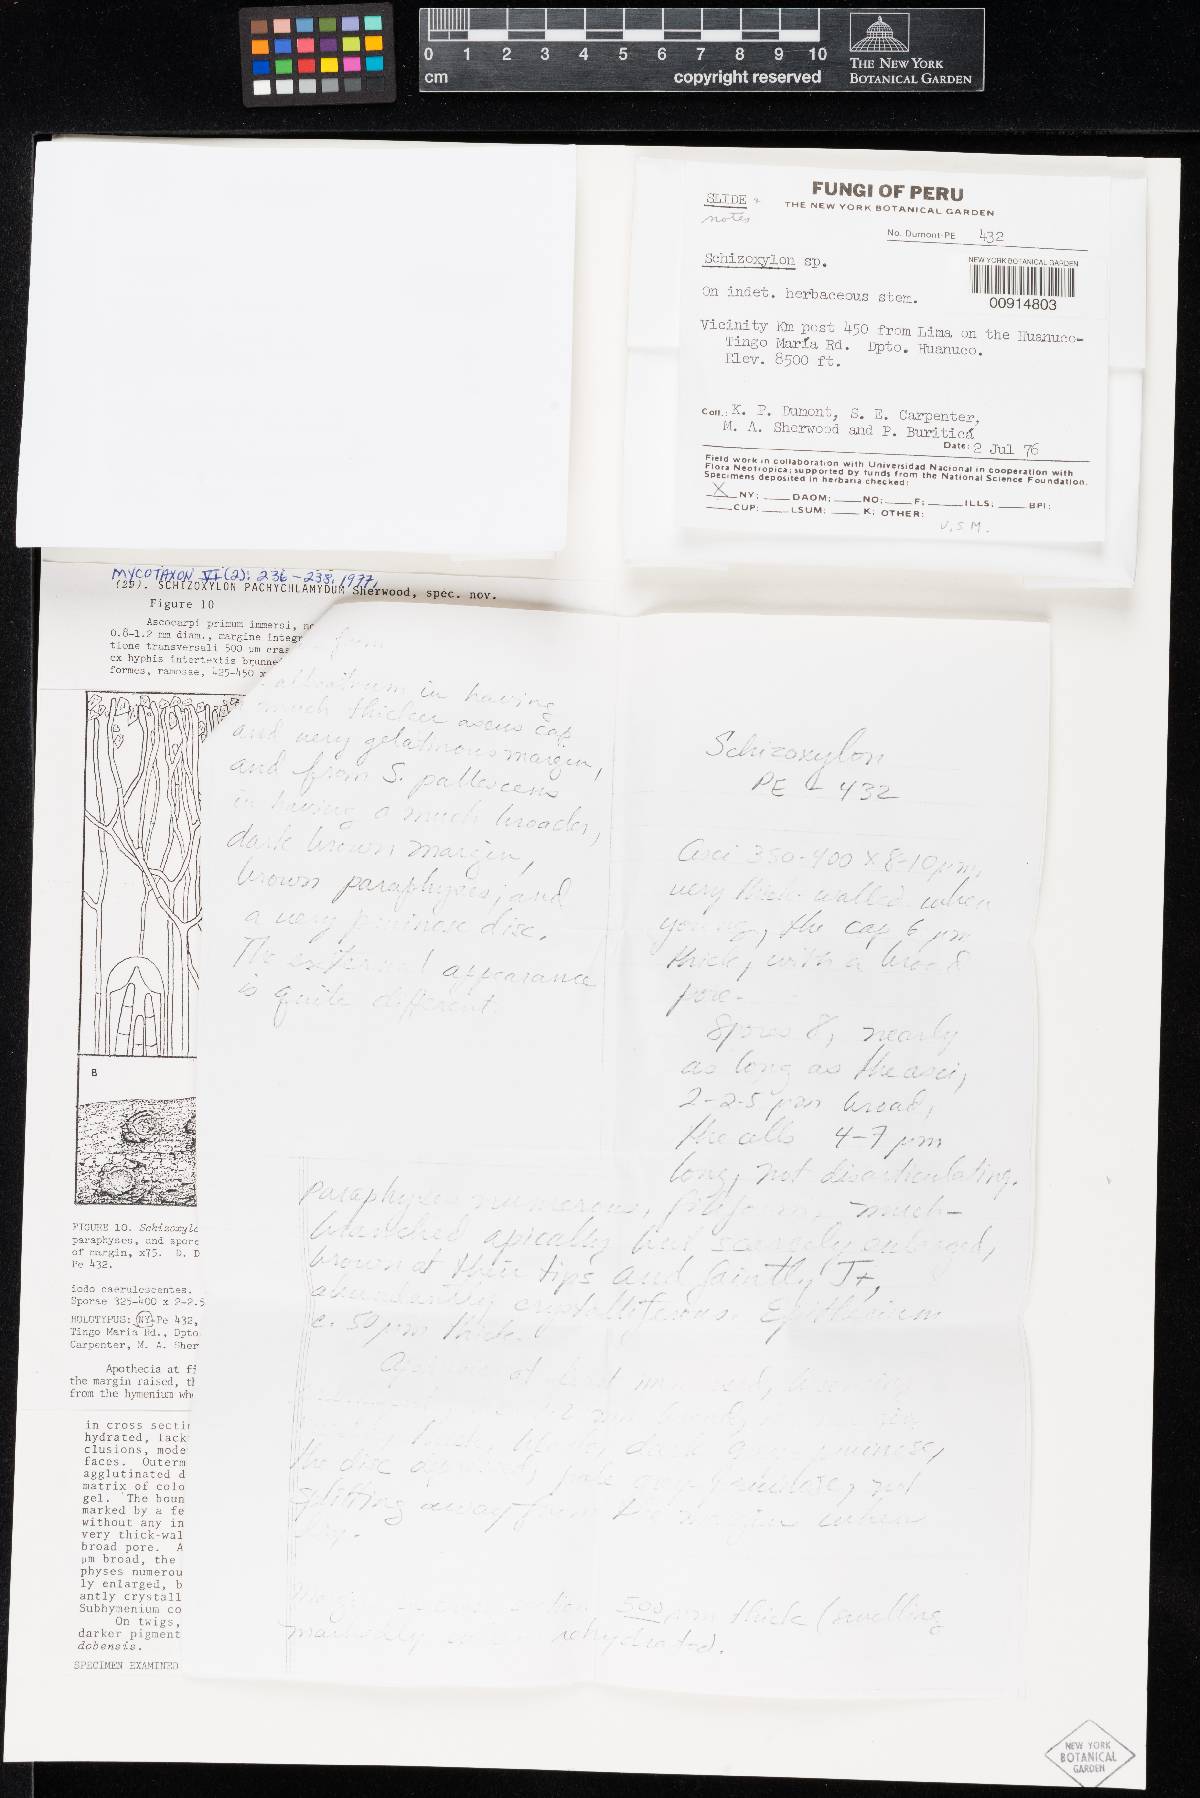 0 1 2 3 4 5 6 7 8 9 10
cm
copyright reserved
THE NEW YORK
BOTANICAL GARDEN
SLIDE &
notes
FUNGI OF PERU
THE NEW YORK BOTANICAL GARDEN
No. Dumont-PE 432
Schizoxylon sp.
NEW YORK BOTANICAL GARDEN
00914803
On indet. herbaceous stem.
Vicinity Km post 450 from Lima on the Huanuco-
Tingo María Rd. Dpto. Huanuco.
Elev. 8500 ft.
Coll.: K. P. Dumont, S. E. Carpenter,
M. A. Sherwood and P. Buriticá
Date: 2 Jul 76
Field work in collaboration with Universidad Nacional in cooperation with
Flora Neotropica; supported by funds from the National Science Foundation.
Specimens deposited in herbaria checked:
X NY; DAOM; NO; F; ILLS; BPI;
CUP; LSUM; K; OTHER:
U.S.M.
MYCOTAXON VI(2): 236-238, 1977,
(25). SCHIZOXYLON PACHYCHLAMYDUM Sherwood, spec. nov.
Figure 10
Ascocarpi primum immersi,
0.8-1.2 mm diam., margine integr
tione transversali 500 µm cras
ex hyphis intertextis brunne
formes, ramosae, 425-450 x
B
FIGURE 10. Schizoxylo
paraphyses, and spore
of margin, x75. D. D
Pe 432.
iodo caerulescentes.
Sporae 325-400 x 2-2.5
HOLOTYPUS: NY Pe 432,
Tingo Maria Rd., Dpto
Carpenter, M. A. Sher
Apothecia at fi
the margin raised, t
from the hymenium wh
in cross secti
hydrated, lack
clusions, mode
faces. Outerm
agglutinated d
matrix of colo
gel. The boun
marked by a fe
without any in
very thick-wal
broad pore. A
µm broad, the
physes numerou
ly enlarged, b
antly crystall
Subhymenium co
On twigs,
darker pigment
dobensis.
SPECIMEN EXAMINED
from
alboatrum in having
much thicker ascus cap
and very gelatinous margin,
and from S. pallescens
in having a much broader,
dark brown margin,
brown paraphyses, and
a very pruinose disc.
The external appearance
is quite different.
Schizoxylon
PE 432
Asci 350-400 x 8-10 µm,
very thick-walled when
young, the cap 6 µm
thick, with a broad
pore.
Spores 8, nearly
as long as the asci,
2-2.5 µm broad,
the cells 4-7 µm
long, not disarticulating.
Paraphyses numerous, filiform, much-
branched apically but scarcely enlarged,
brown at their tips and faintly J+,
abundantly crystalliferous. Epithecium
c. 50 µm thick.
at first immersed,
dark
the disc
splitting away from the margin when
dry.
500 µm thick (swelling
markedly when rehydrated).
NEW YORK
BOTANICAL
GARDEN